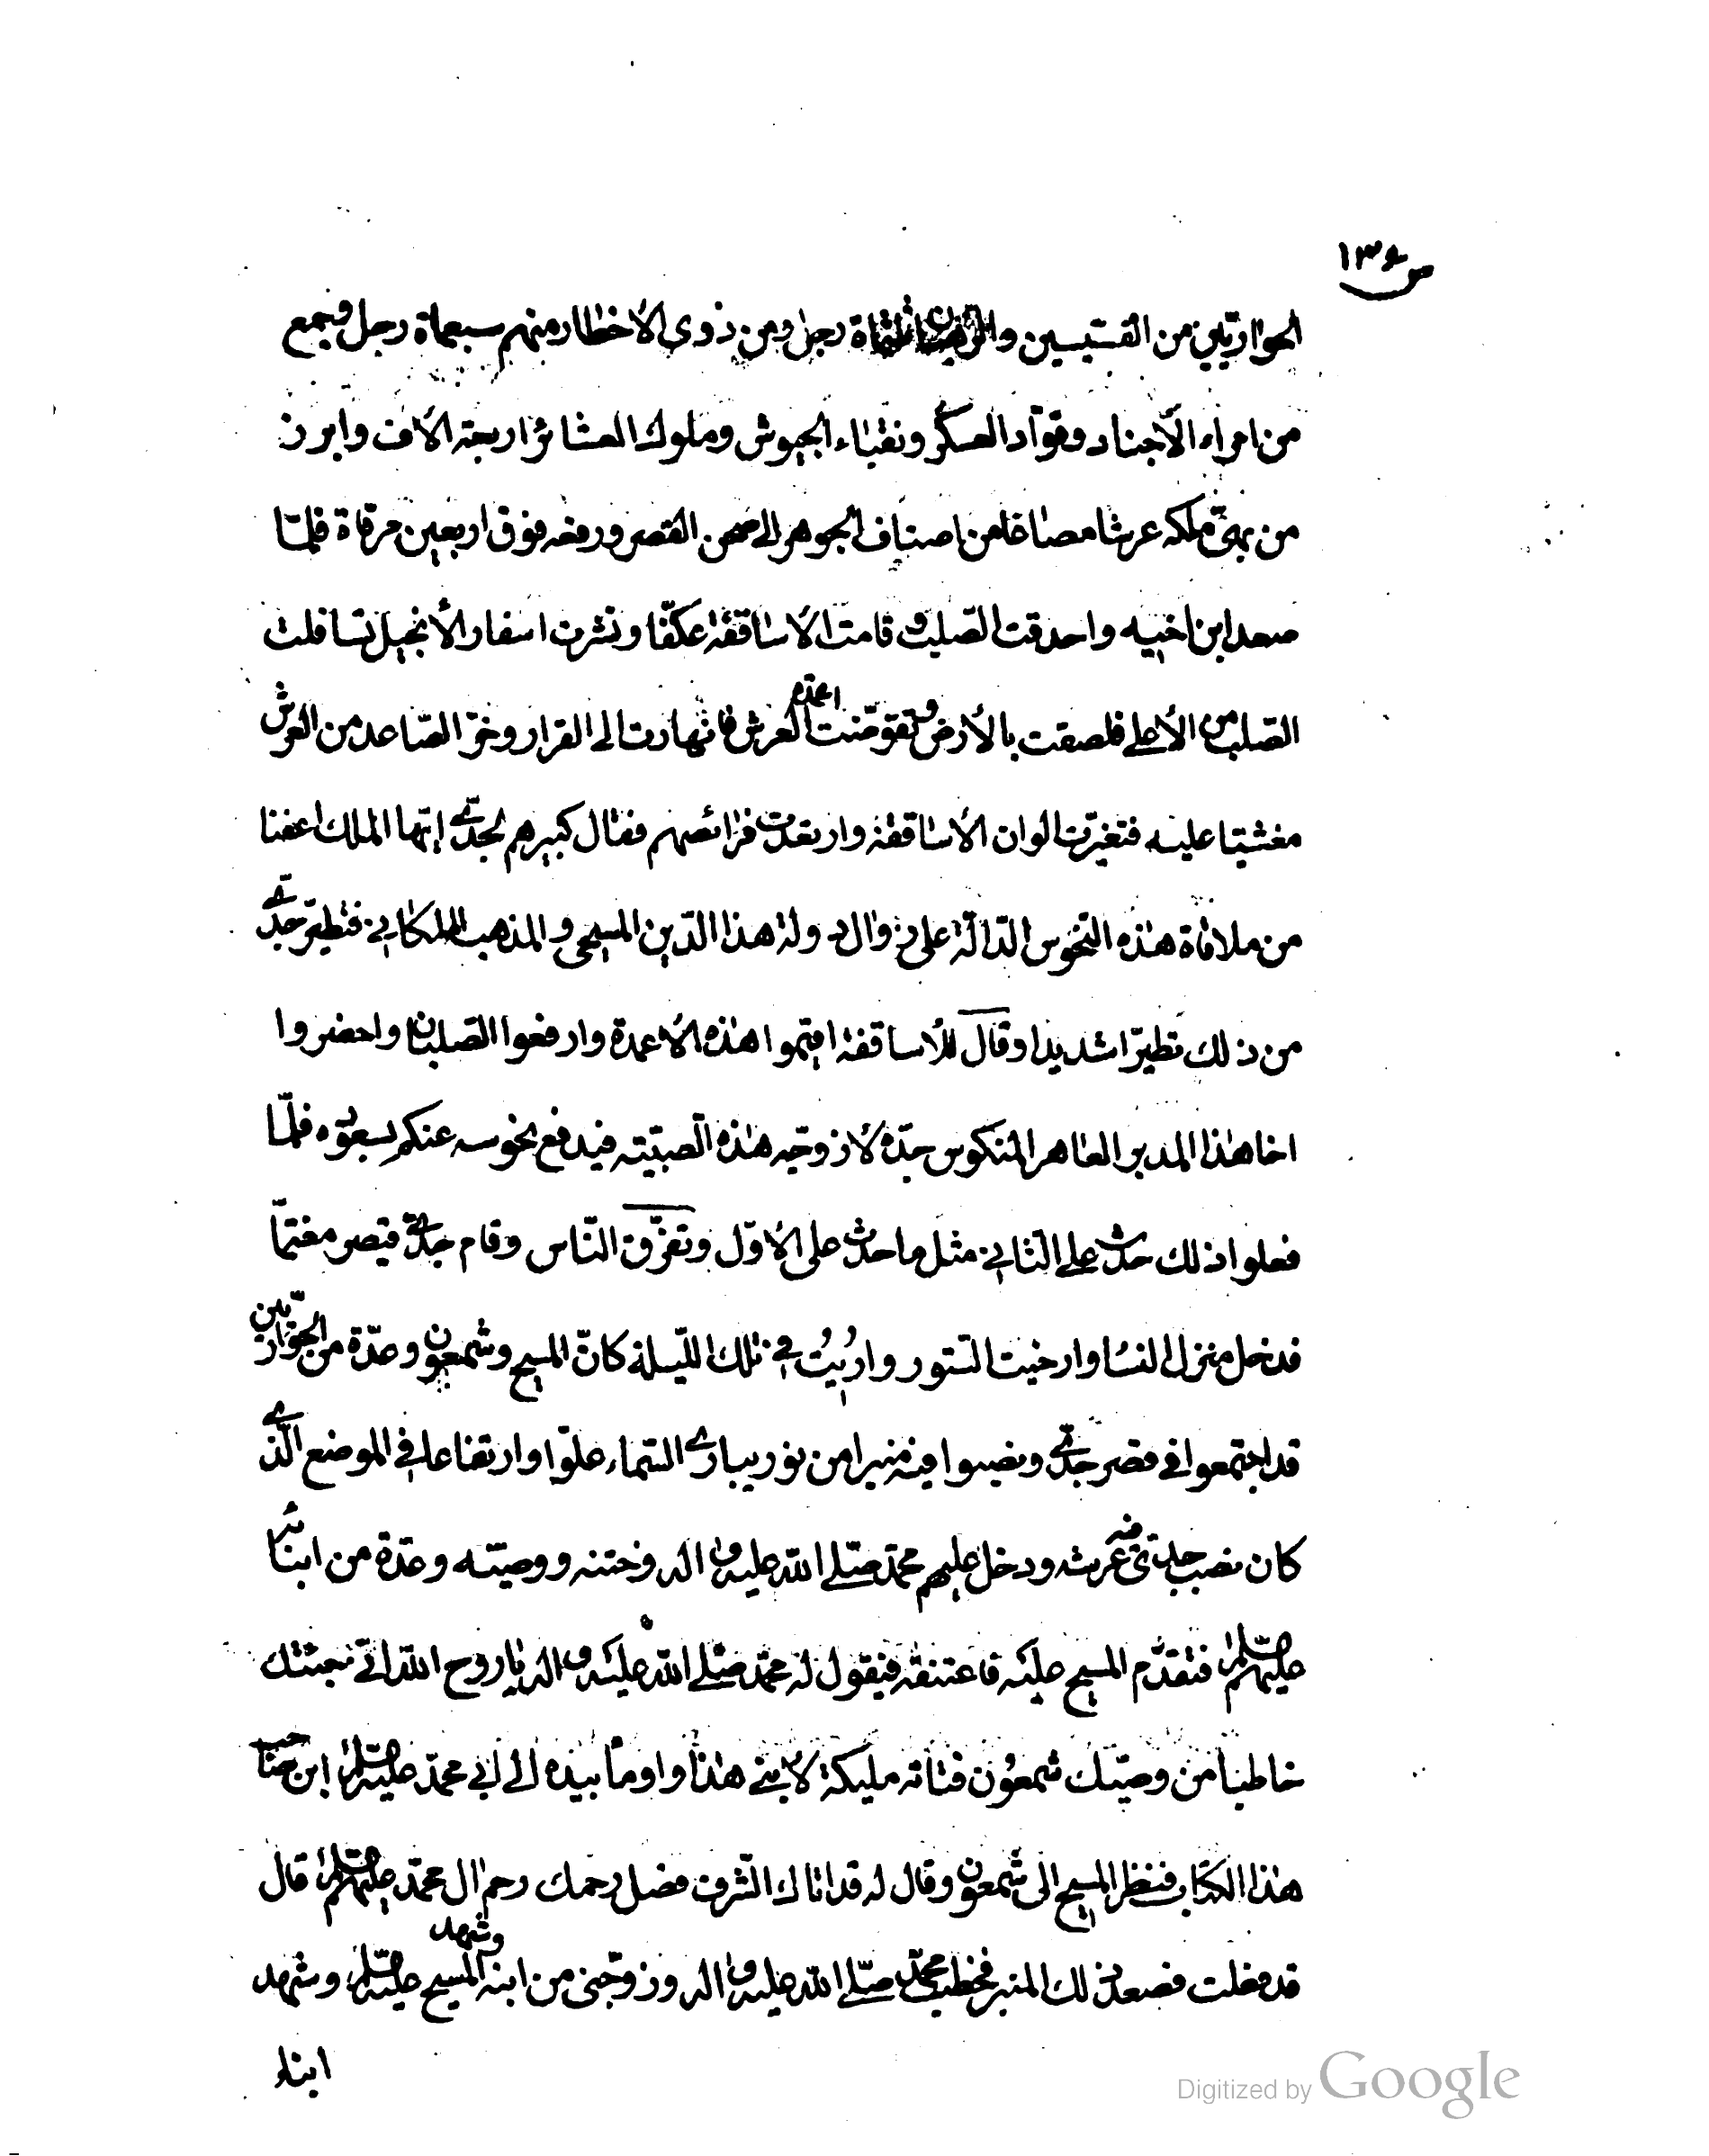 ص ١٣٤
الحواريين من القسيسين والرهبان ثلثماة رجل ومن ذوى الأخطار منهم سبعماة رجل وجمع
من امراء الأجناد وقوّاد العسكر ونقباء الجيوش وملوك العشائر اربعة الاف وابرز
من بهىّ ملكه عرشا مصاغا من اصناف الجوهر الى صحن القصر ورفعه فوق اربعين مرقاة فلمّا
صعد ابن اخيه واحدقت الصلب وقامت الأساقفة عكّفا ونشرت اسفار الأنجيل تسافلت
الصلب من الأعلى فلصقت بالأرض وتقوّضت اعمدة العرش فانهارت الى القرار وخرّ الصّاعد من العرش
مغشيّا عليه فتغيّرت الوان الأساقفة وارتعدت فرائصهم فقال كبيرهم لجدّى ايّها الملك اعفنا
من ملاقاة هذه النّحوس الدّالّة على زوال دولة هذا الدّين المسيحى والمذهب الملكانى فتطيّر جدّى
من ذلك تطيّرا شديدا وقال للأساقفة اقيموا هذه الأعمدة وارفعوا الصّلبان واحضروا
اخا هذا المدبر العاهر المنكوس جدّه لأزوّجه هذه الصّبيّة فيدفع نحوسه عنكم بسعوده فلمّا
فعلوا ذلك حدث على الثانى مثل ما حدث على الأوّل وتفرّق النّاس وقام جدّى قيصر مغتمّا
فدخل منزل النسا وارخيت السّتور واُريْتُ فى تلك اللّيلة كانّ المسيح وشمعون وعدّة من الحواريّين
قد اجتمعوا فى قصر جدّى ونصبوا فيه منبرا من نور يبارى السّماء علوّا وارتفاعا فى الموضع الّذى
كان نصب جدّى فيه عرشه ودخل عليهم محمّد صلّى الله عليه واله وختنه ووصيّه وعدّة من ابنائه
عليهم السّلم فتقدّم المسيح عليه فاعتنقه فيقول له محمّد صلّى الله عليه واله يا روح الله انّى جئتك
خاطبا من وصيّك شمعون فتاته مليكة لأبنى هذا واومأ بيده الى ابى محمّد عليه السّلم ابن صاحب
هذا الكتاب فنظر المسيح الى شمعون وقال له قد اتاك الشّرف فصل رحمك رحم ال محمّد عليهم السّلم قال
قد فعلت فصعد ذلك المنبر فخطب محمّد صلّى الله عليه واله وزوّجنى من ابنه وشهد المسيح عليه السّلم وشهد
ابناء
Digitized by Google